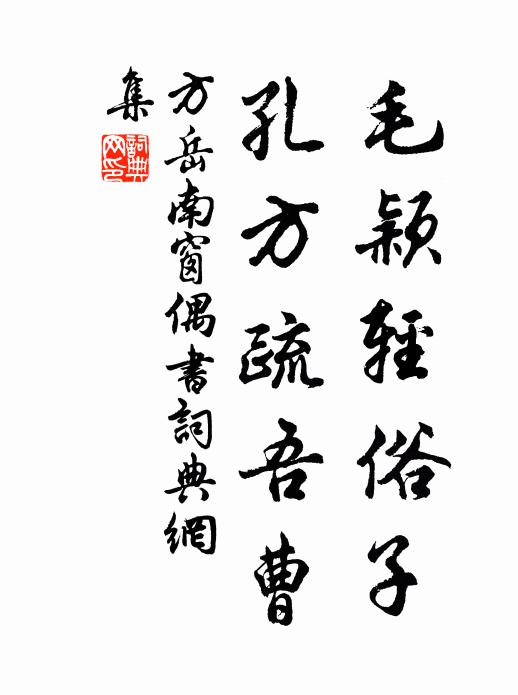 毛颖輕俗子
孔方疏吾曹
方岳南窗偶書詞典網
集
詞典
网印